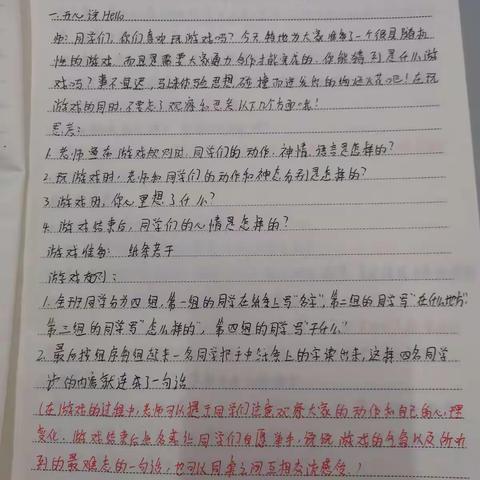 一、开心说Hello
师：同学们，你们喜欢玩游戏吗？今天特地为大家准备了一个很具随机
性的游戏，而且是需要大家通力合作才能完成的，你能猜到是什么游
戏吗？事不宜迟，马上体验思想碰撞而迸发出的绚丽火花吧！在玩
游戏的同时，不要忘了观察和思考以下几个方面哦！
思考：
1.老师宣布游戏规则时，同学们的动作、神情、语言是怎样的？
2.玩游戏时，老师和同学们的动作和神态分别是怎样的？
3.游戏时，你心里想了什么？
4.游戏结束后，同学们的心情是怎样的？
游戏准备：纸条若干
游戏规则：
1.全班同学分为四组，第一组的同学在纸条上写"名字"，第二组的同学写"在什么地方"
第三组的同学写"怎么样的"，第四组的同学写"干什么"
2.最后按组序每组起来一名同学把手中纸条上的字读出来，这样四名同学
读的内容就连成了一句话
(在游戏的过程中，老师可以提示同学们注意观察大家的动作和自己的心理
变化，游戏结束后让同学们自愿举手，说说游戏的气氛以及听
到的最难忘的一句话，也可以同桌之间互相交流感受。)